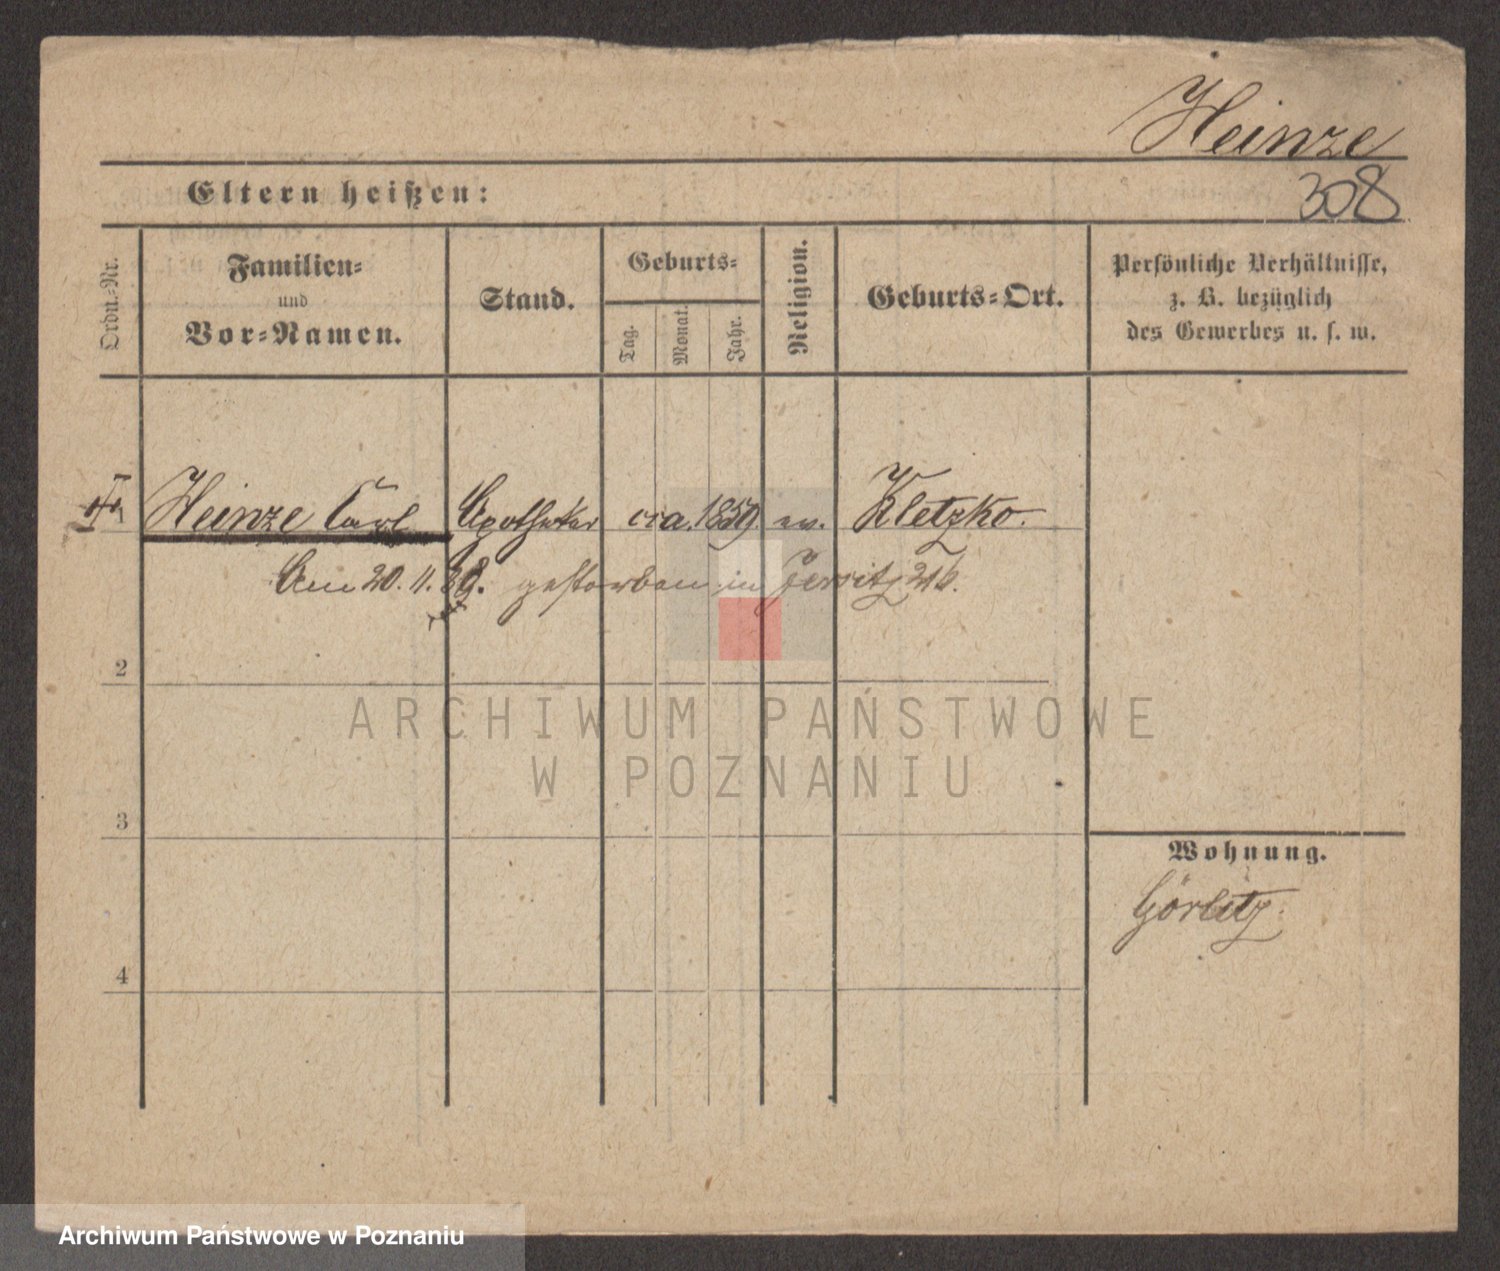 Heinze
308
Eltern heißen:
Ordn.-Nr.
Familien-
und
Vor-Namen.
Stand.
Geburts-
Tag.
Monat.
Jahr.
Religion.
Geburts-Ort.
Persönliche Verhältnisse,
z. B. bezüglich
des Gewerbes u. s. w.
1 Heinze Carl Apotheker cca. 1859 ev. Kletzko.
Am 20. 11. 89. gestorben in Jersitz 216.
2
ARCHIWUM PAŃSTWOWE
W POZNANIU
3
Wohnung.
Görlitz.
4
Archiwum Państwowe w Poznaniu